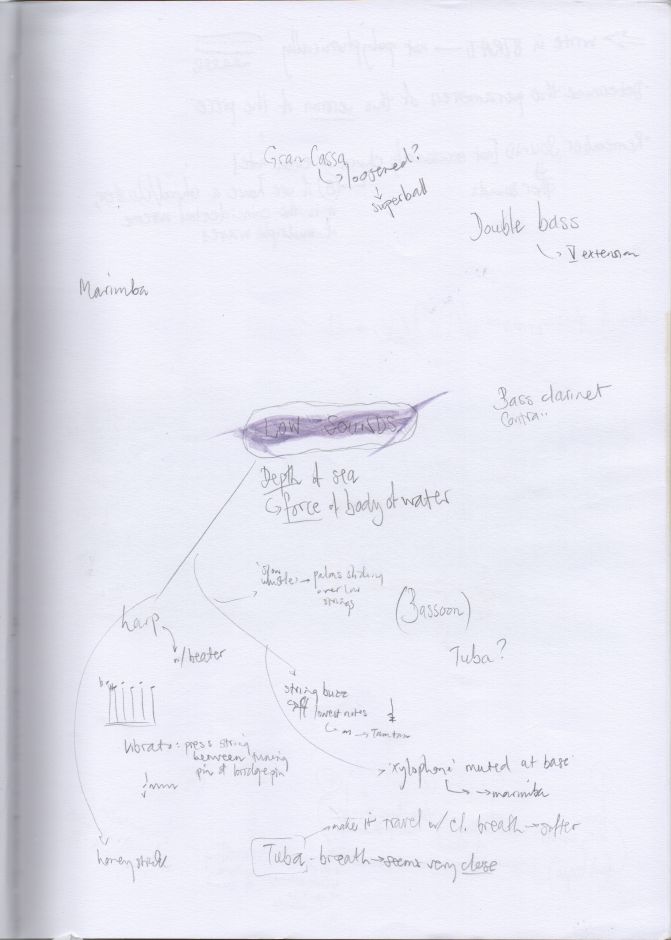 Gran Cassa
↳ loosened?
↓
superball
Double bass
↳ V extension
Marimba
LOW SOUNDS
Bass clarinet
Contra..
Depth of sea
↳ force of body of water
whistle → palms sliding
over low
strings
(Bassoon)
Tuba?
harp
w/ beater
string buzz
lowest notes
↳ → Tamtam
Vibrato: press string
between tuning
pin & bridgepin
'xylophone' muted at base
↳ → marimba
make it travel w/ cl. breath → softer
Tuba - breath → seems very close